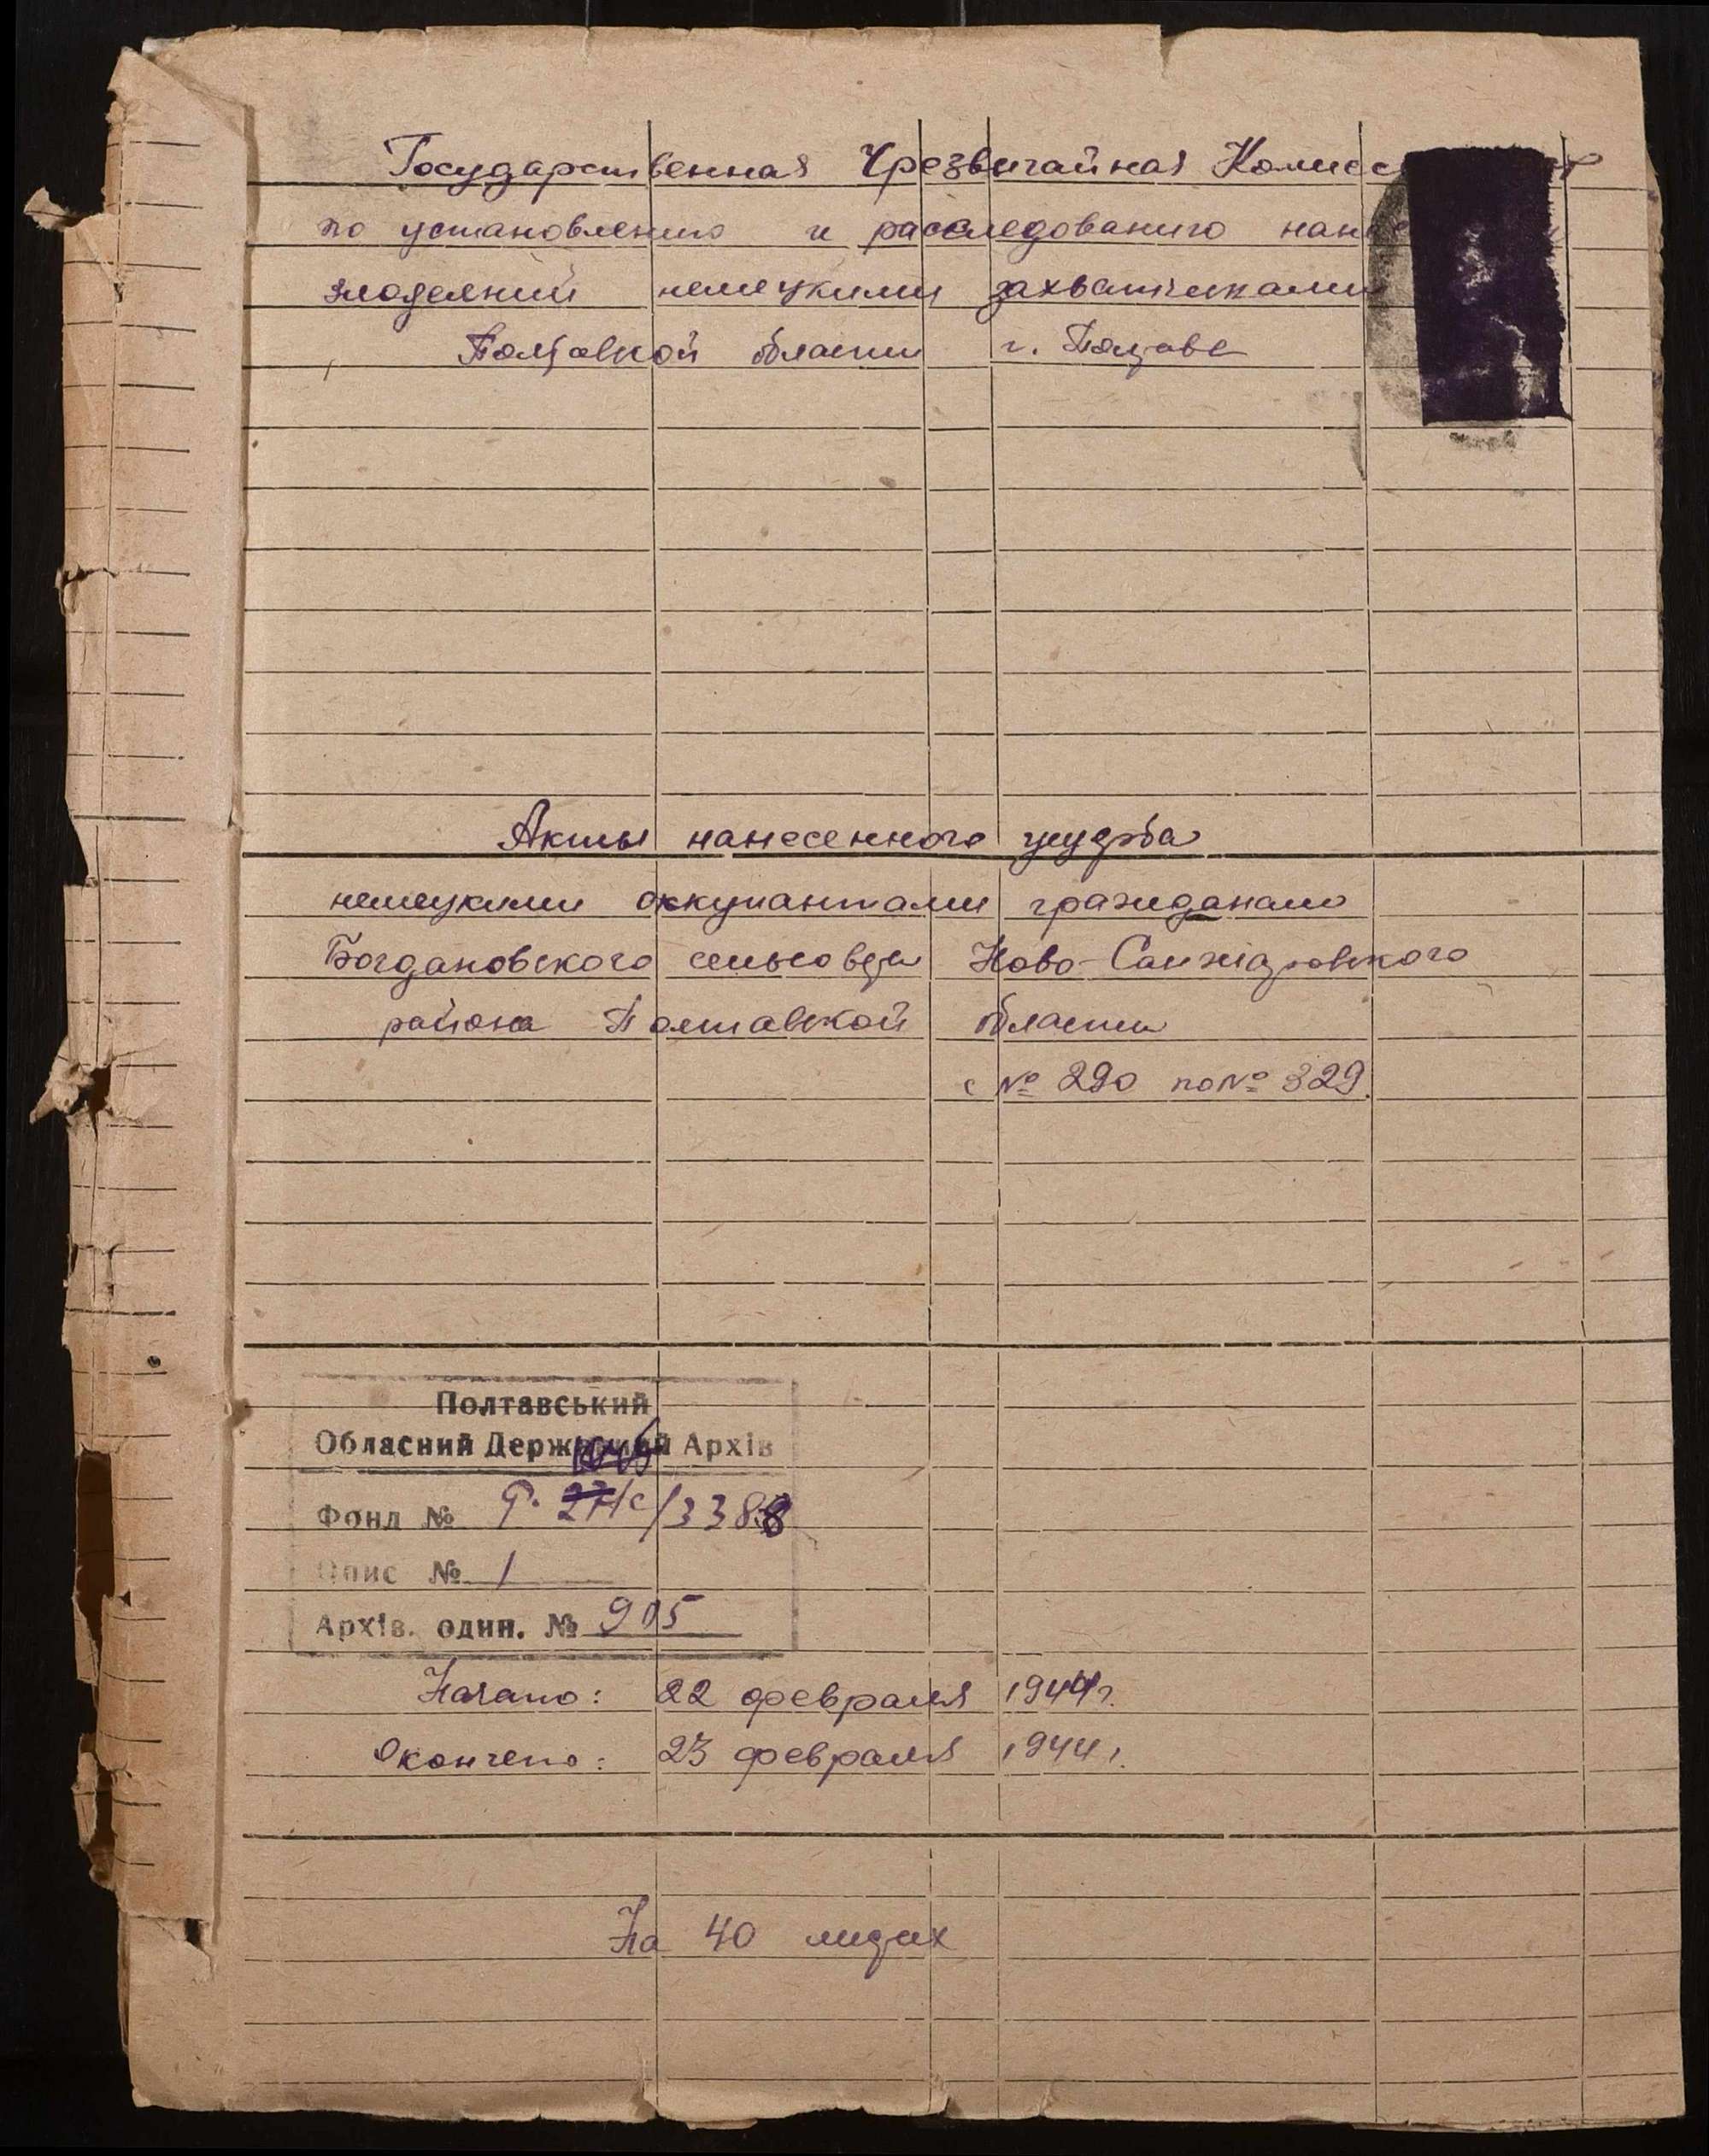 Государственная Чрезвычайная Комисс
по установлению и расследованию нан
злодеяний немецкими захватчиками
Полтавской области г. Полтаве
Акты нанесенного ущерба
немецкими оккупантами гражданам
Богдановского сельсовета Ново-Санжаровского
района Полтавской области
с № 290 по № 329.
Полтавський
Обласний Державний Архів
Фонд № Р. 3388
Опис № 1
Архів. один. № 905
Начато: 22 февраля 1944 г.
Окончено: 23 февраля 1944 г.
На 40 лист